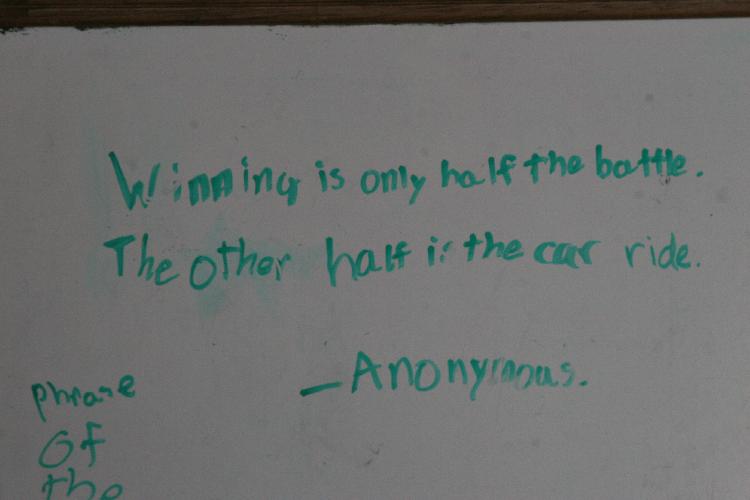 Winning is only half the battle.
The other half is the car ride.
_Anonymous.
phrase
of
the